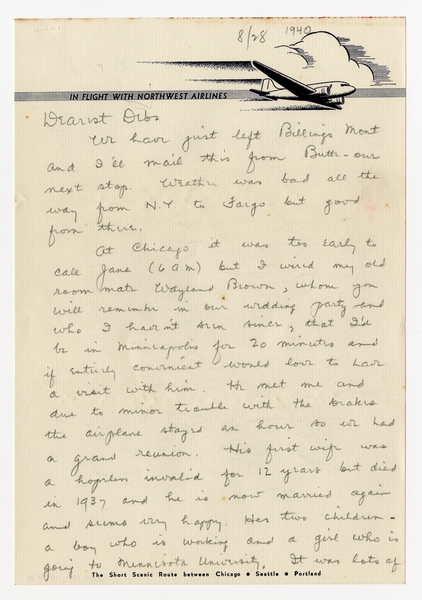 8/28 1940
IN FLIGHT WITH NORTHWEST AIRLINES
Dearest Dibs
We have just left Billings Mont
and I'll mail this from Butte - our
next stop. Weather was bad all the
way from N.Y. to Fargo but good
from there.
At Chicago it was too early to
call Jane (6 am) but I wired my old
room mate Wayland Brown, whom you
will remember in our wedding party and
who I haven't seen since, that I'd
be in Minneapolis for 20 minutes and
if entirely convenient would love to have
a visit with him. He met me and
due to minor trouble with the brakes
the airplane stayed an hour so we had
a grand reunion. His first wife was
a hopeless invalid for 12 years but died
in 1937 and he is now married again
and seems very happy. Has two children -
a boy who is working and a girl who is
going to Minnesota University. It was lots of
The Short Scenic Route between Chicago • Seattle • Portland